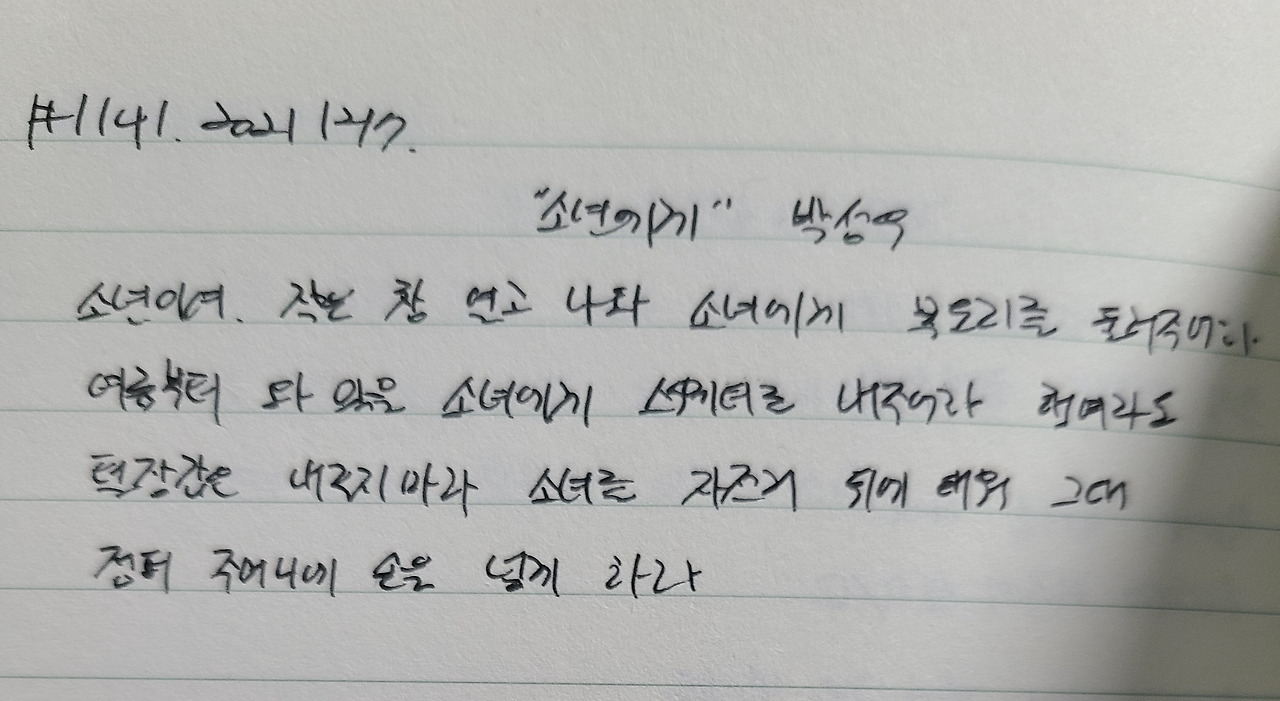 #1141. 2021 12 7.
"소년에게" 박성우
소년이여. 작은 창 열고 나와 소녀에게 목도리를 둘러주어라.
여름부터 와 있을 소녀에게 스웨터를 내주어라 행여라도
털장갑은 내주지 마라 소녀를 자전거 뒤에 태워 그대
점퍼 주머니에 손을 넣게 하라